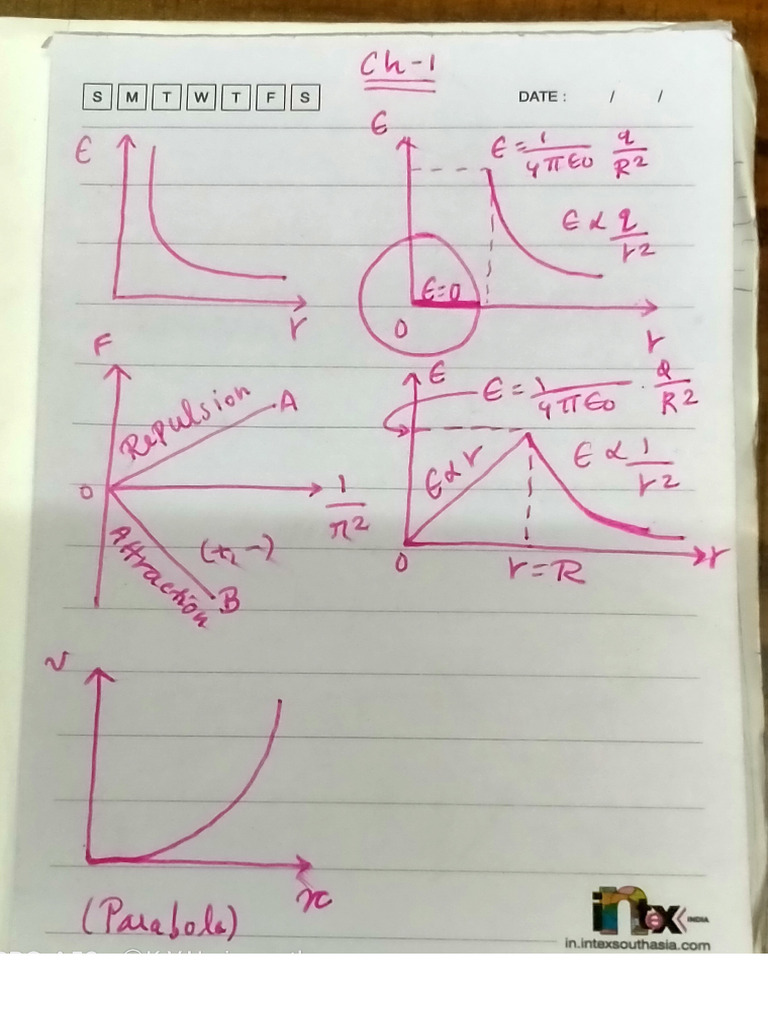 Ch-1
S M T W T F S
DATE : / /
E
r
E
E = 1/4πε0 q/R2
E ∝ q/r2
E=0
O
r
F
Repulsion A
O
1/r2
Attraction
(+, -)
B
E
E = 1/4πε0 . Q/R2
E ∝ r
E ∝ 1/r2
O
r = R
r
y
x
(Parabola)
intex INDIA
in.intexsouthasia.com